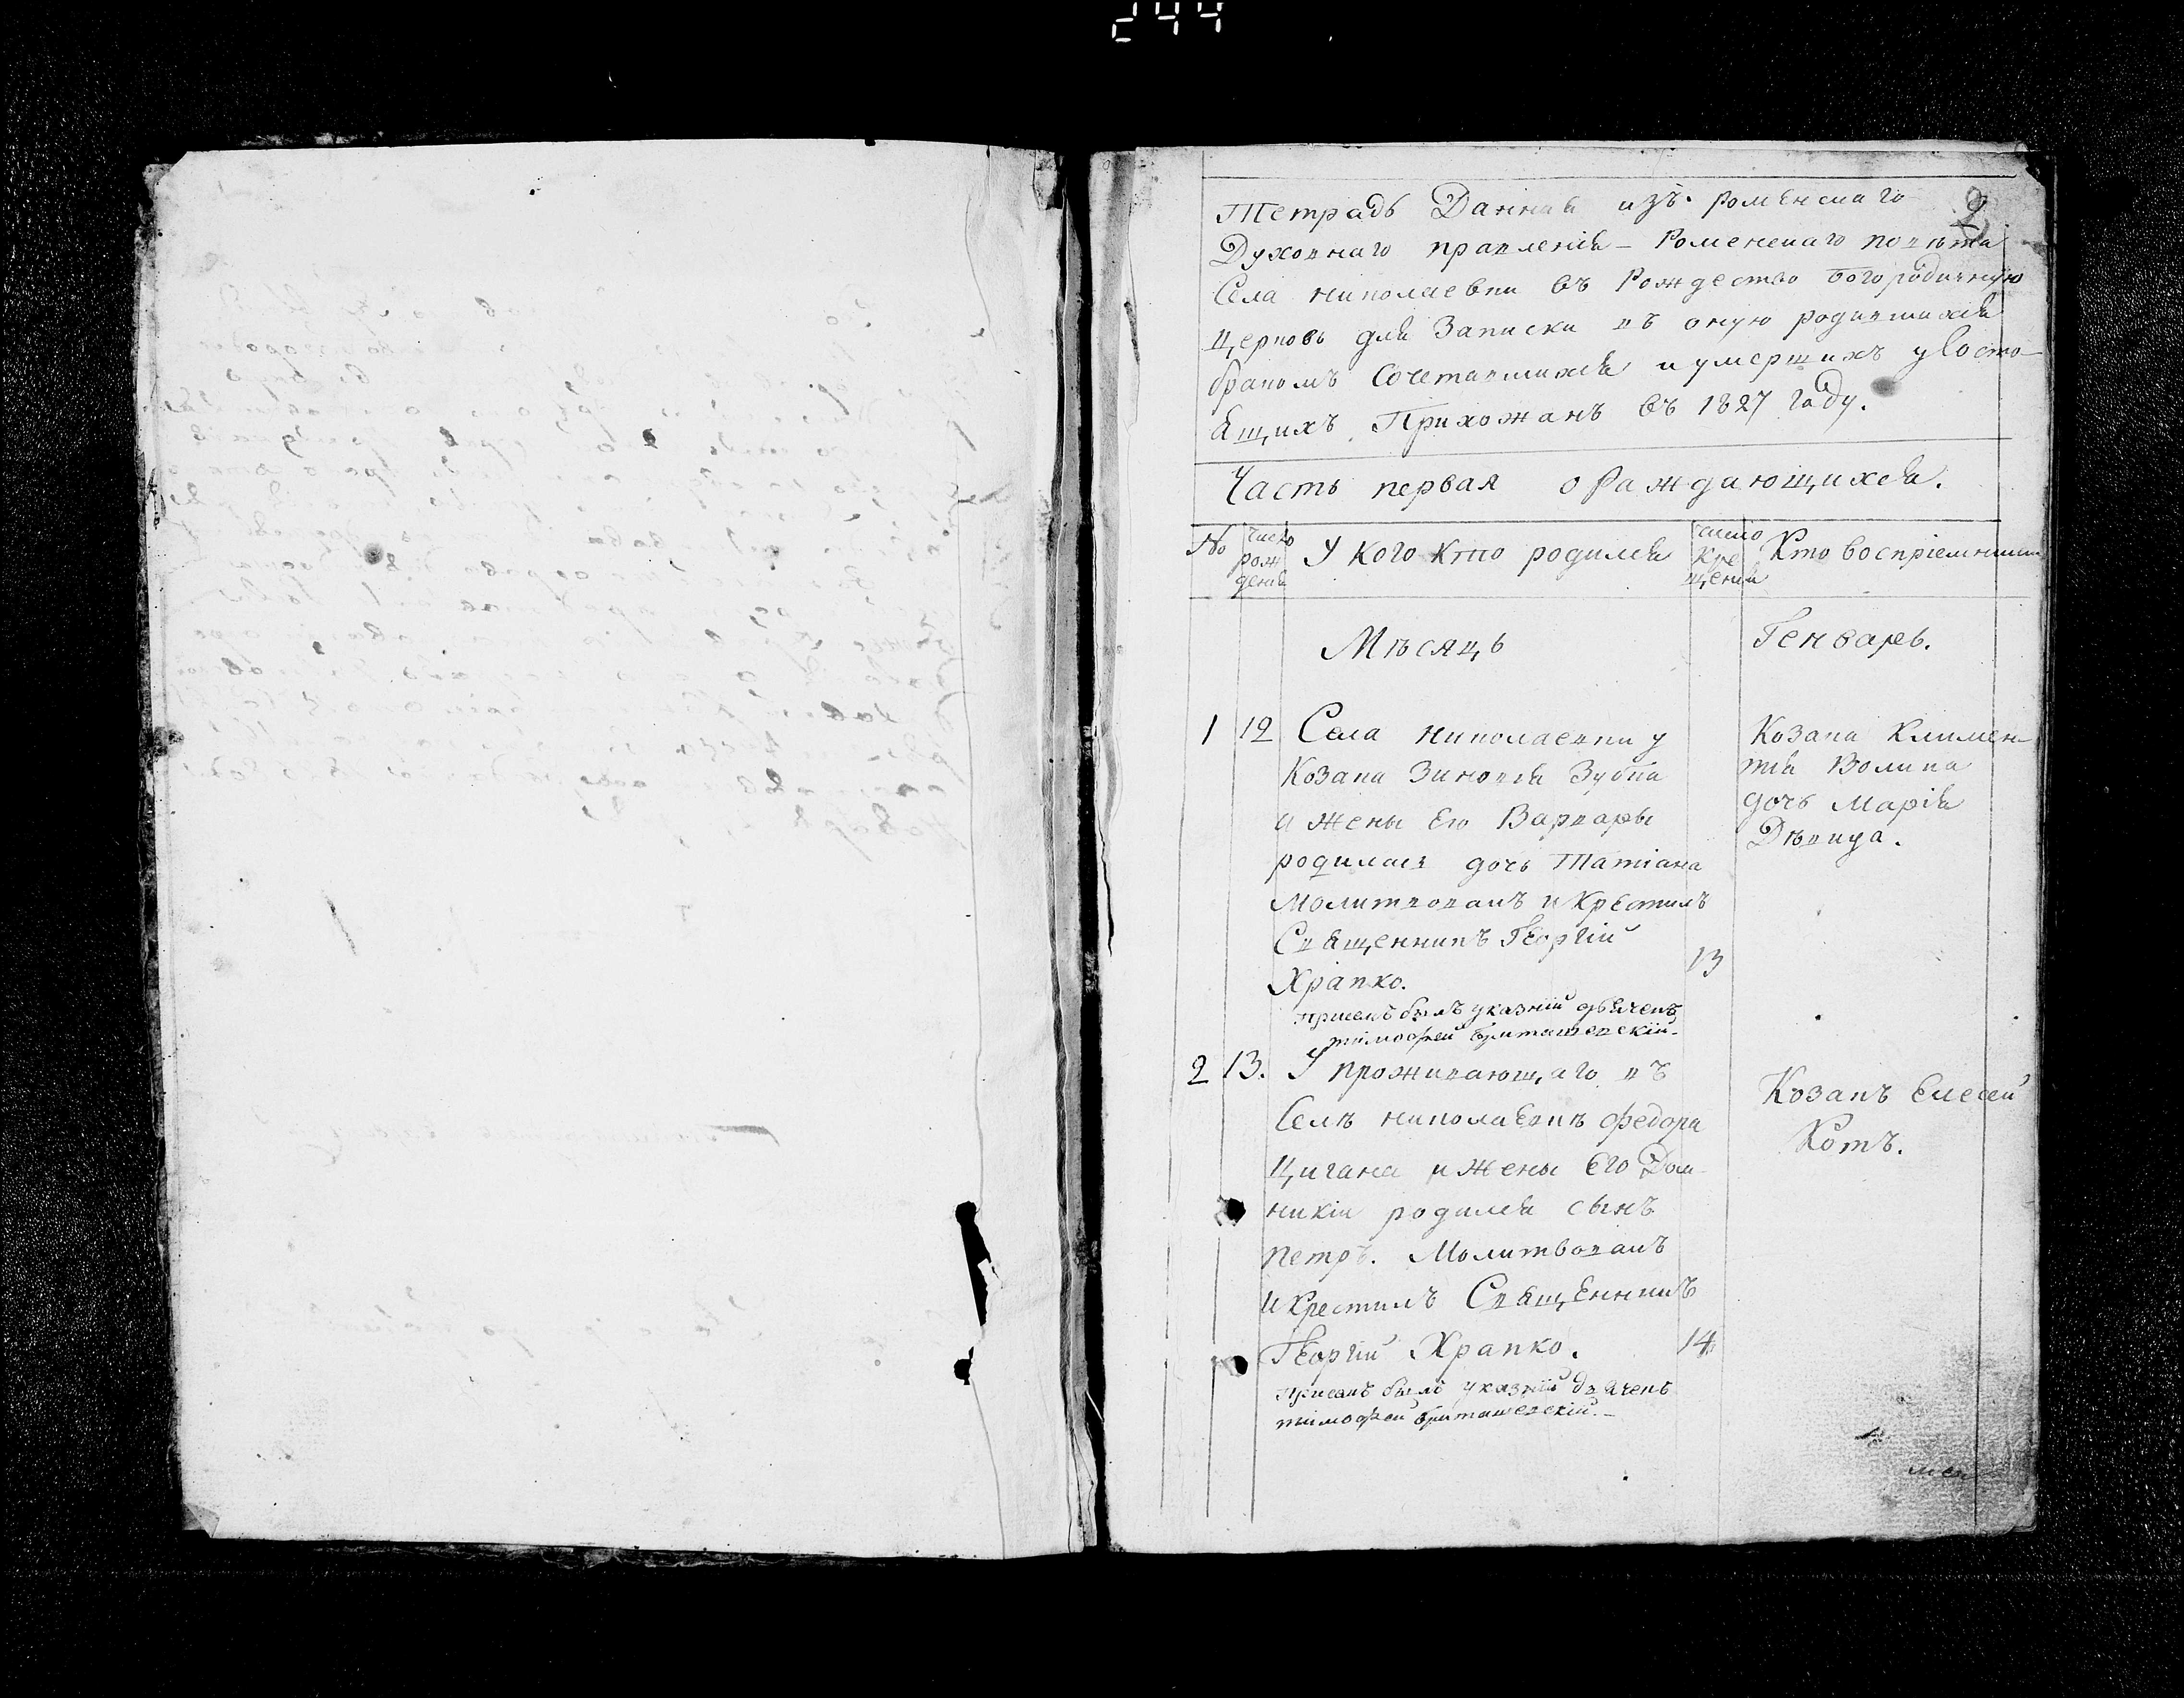 244
2
Тетрадь Данная изъ Роменскаго
Духовнаго правления – Роменскаго повѣта
Села николаевки въ Рождество Богородичную
церковь для Записки въ оную родившихся
бракомъ Сочетавшихся и умершихъ у Состо-
ящихъ Прихожанъ въ 1827 Году.
Часть первая о Раждающихся.
№
число рож дения
У кого кто родился
число Кре щения
Кто воспріемники
Мѣсяць Генварь.
1 12 Села николаевки у
Козака Зиновія Зубка
и жены Его Варвары
родилась дочь Татіана
молитвовалъ и Крестилъ
Священникъ Георгій
Храпко. 13
присемъ былъ указній дьячекъ
тимофей
Козака Климен-
тія Волика
дочь Марія
Дѣвица.
2 13. У проживающаго въ
Селѣ николаевкѣ федора
Цигана и жены его Дом-
никіи родился сынъ
петръ. Молитвовалъ
и Крестилъ Священникъ
Георгій Храпко. 14
присемъ былъ указній дьячекъ
тимофей
Козакъ Елесей
Котъ.